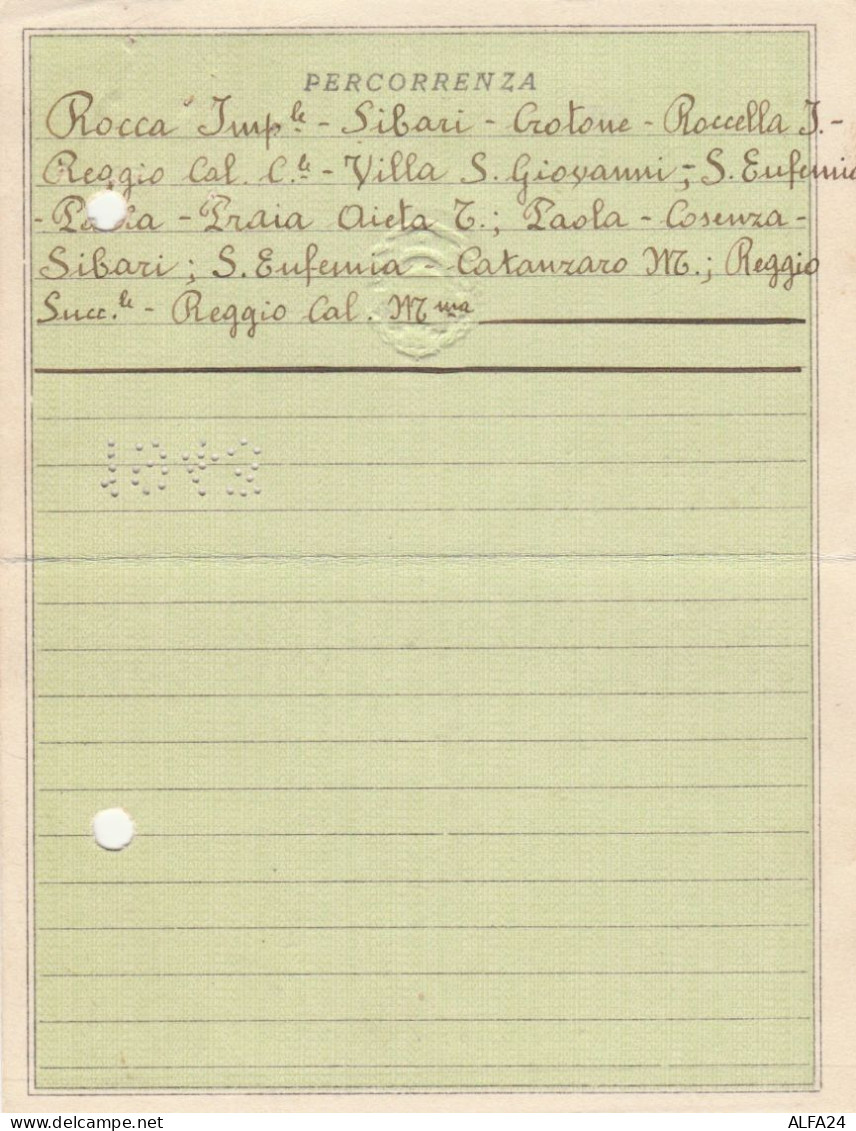 PERCORRENZA
Rocca Imp.le - Sibari - Crotone - Roccella J. -
Reggio Cal. C.le - Villa S. Giovanni; - S. Eufemia
- Paola - Praia Aieta T.; Paola - Cosenza -
Sibari; S. Eufemia - Catanzaro M.; Reggio
Succ.le - Reggio Cal. Mma
delcampe.net
ALFA24